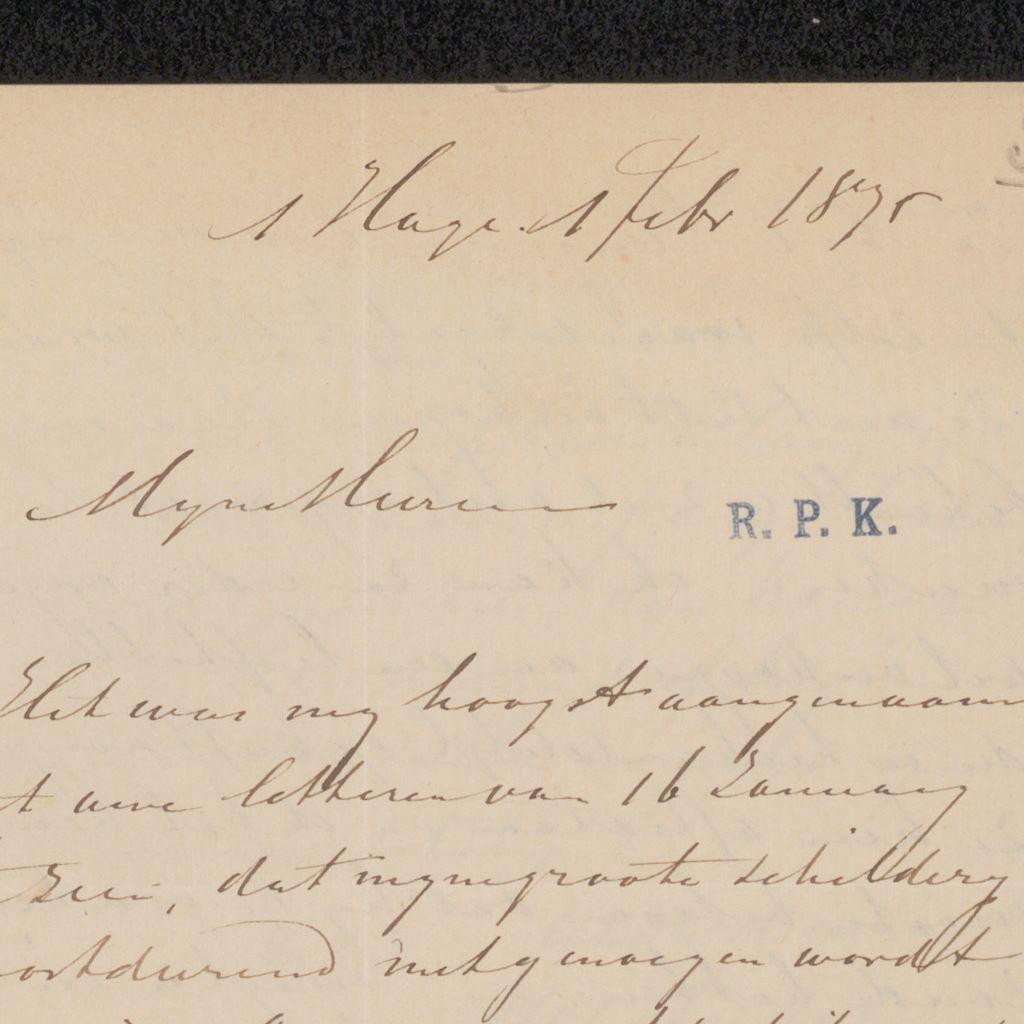 s Hage. 1 Febr 1875
Myne Heeren
R. P. K.
Het was my hoogst aangenaam
t uwe letteren van 16 January
zien, dat myne groote schildery
oortdurend met genoegen wordt